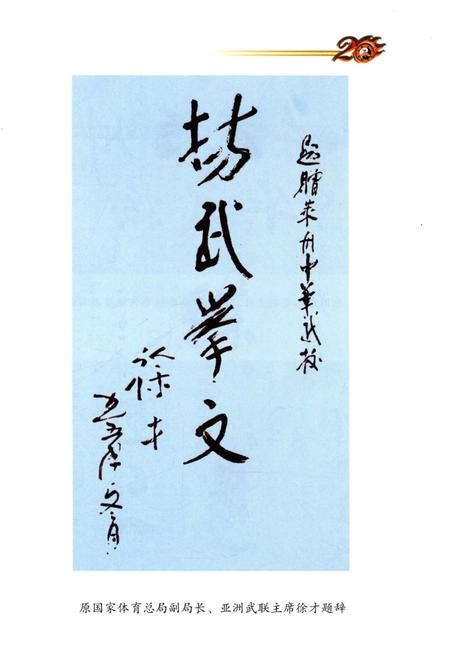 20
题赠莱州中华武校
扬武举文
徐才
九五年六月
原国家体育总局副局长、亚洲武联主席徐才题辞